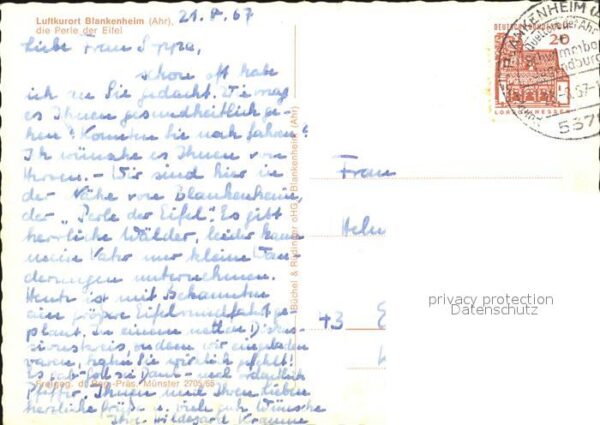 Luftkurort Blankenheim (Ahr),
die Perle der Eifel
21.8.67
Liebe Frau
schon oft habe
ich an Sie gedacht. Wie mag
es Ihnen gesundheitlich ge-
hen? Konnten Sie noch fahren?
Ich wünsche es Ihnen von
Herzen. - Wir sind hier in
der Nähe von Blankenheim,
der "Perle der Eifel". Es gibt
herrliche Wälder, leider kann
mein Vater nur kleine Wan-
derungen unternehmen.
Heute ist mit Bekannten
eine große Eifelrundfahrt ge-
plant. In einem netten Diskus-
sionskreis, zu dem wir eingeladen
waren, haben Sie wirklich gefehlt!
Es gab
Pfeffer. Ihnen und Ihren Lieben
herzliche Grüße u. viele gute Wünsche
Ihre Hildegard
Freigeg. d. Reg.-Präs. Münster 2705/65
Büchel & Blankenheim (Ahr)
DEUTSCHE BUNDESPOST
20
BLANKENHEIM
Quellort der Ahr
5378
Frau
Helu
43 E
privacy protection
Datenschutz